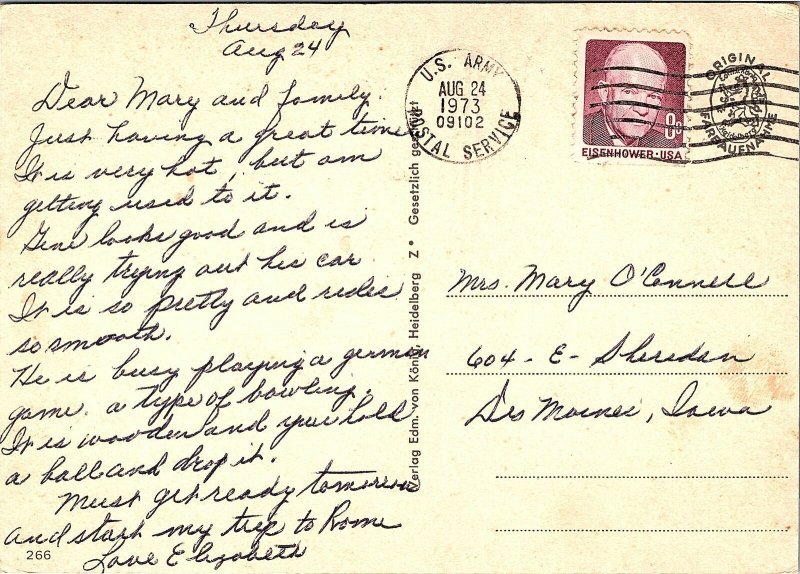 Thursday
Aug 24
Dear Mary and family.
Just having a great time
It is very hot, but am
getting used to it.
Gene looks good and is
really trying out his car
It is so pretty and rides
so smooth.
He is busy playing a german
game. a type of bowling.
It is wooden and you hold
a ball and drop it.
Must get ready tomorrow
and start my trip to Rome
Love Elizabeth
266
Verlag Edm. von König, Heidelberg Z • Gesetzlich geschützt
U.S. ARMY
AUG 24
1973
09102
POSTAL SERVICE
8c
EISENHOWER·USA
ORIGINAL
FARBAUFNAHME
Mrs. Mary O'Connell
604 - E - Sheridan
Des Moines, Iowa